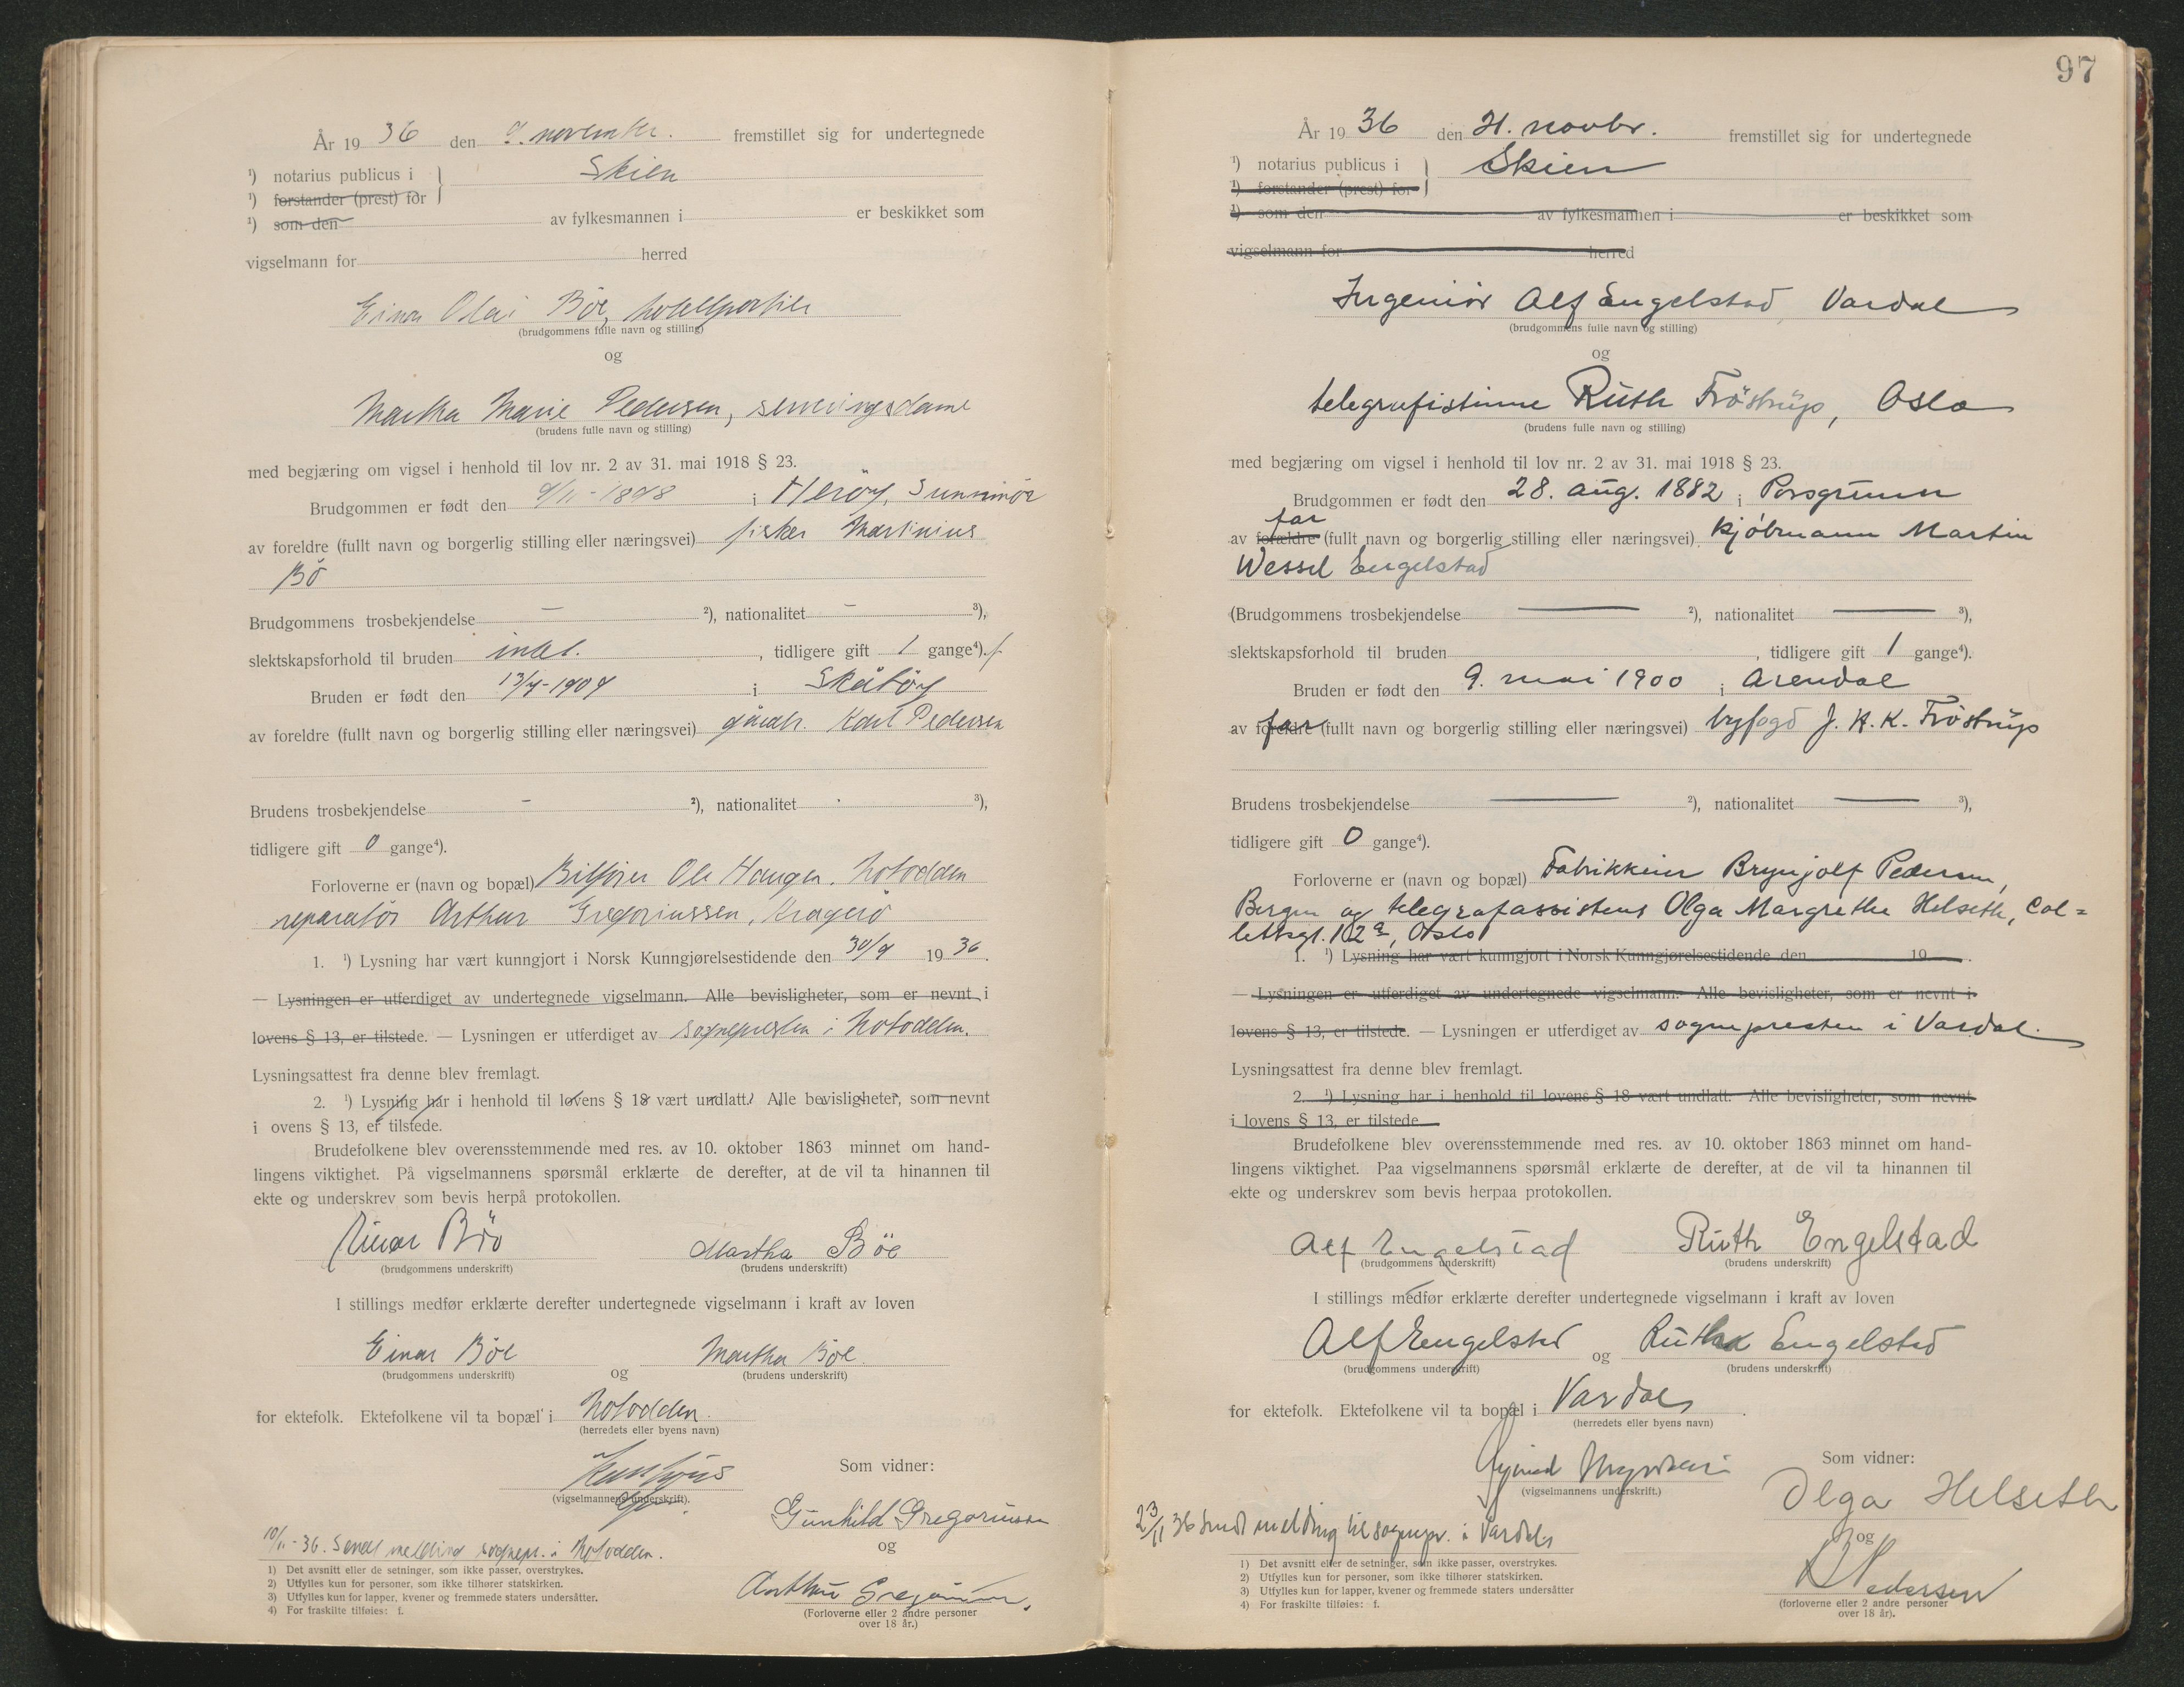 År 19 36 den 9. november. fremstillet sig for undertegnede
¹) notarius publicus i } Skien
¹) forstander (prest) for
¹) som den av fylkesmannen i er beskikket som
vigselmann for herred
Einar Olai Böe, hotellportier
(brudgommens fulle navn og stilling)
og
Martha Marie Pedersen, serveringsdame
(brudens fulle navn og stilling)
med begjæring om vigsel i henhold til lov nr. 2 av 31. mai 1918 § 23.
Brudgommen er født den 9/11-1898 i Heröy, Sunnmöre
av foreldre (fullt navn og borgerlig stilling eller næringsvei) fisker Martinius
Bö
Brudgommens trosbekjendelse – ²), nationalitet – ³),
slektskapsforhold til bruden intet. , tidligere gift 1 gange⁴). f.
Bruden er født den 13/7-1904 i Skåtöy
av foreldre (fullt navn og borgerlig stilling eller næringsvei) gårdbr. Karl Pedersen
Brudens trosbekjendelse – ²), nationalitet - ³),
tidligere gift 0 gange⁴).
Forloverne er (navn og bopæl) Bilfører Ole Haugen, Notodden
reparatör Arthur Gregoriussen, Kragerö
1. ¹) Lysning har vært kunngjort i Norsk Kunngjørelsestidende den 30/9 19 36.
— Lysningen er utferdiget av undertegnede vigselmann. Alle bevisligheter, som er nevnt i
lovens § 13, er tilstede. — Lysningen er utferdiget av sognepresten i Notodden.
Lysningsattest fra denne blev fremlagt.
2. ¹) Lysning har i henhold til lovens § 18 vært undlatt. Alle bevisligheter, som nevnt
i ovens § 13, er tilstede.
Brudefolkene blev overensstemmende med res. av 10. oktober 1863 minnet om hand-
lingens viktighet. På vigselmannens spørsmål erklærte de derefter, at de vil ta hinannen til
ekte og underskrev som bevis herpå protokollen.
Einar Böe Martha Böe
(brudgommens underskrift) (brudens underskrift)
I stillings medfør erklærte derefter undertegnede vigselmann i kraft av loven
Einar Böe og Martha Böe
(brudgommens underskrift) (brudens underskrift)
for ektefolk. Ektefolkene vil ta bopæl i Notodden.
(herredets eller byens navn)
Som vidner:
(vigselmannens underskrift).
Gunhild Gregoriussen
og
10/11-36. Sendt melding sognepr. i Notodden.
Arthur Gregoriussen.
(Forloverne eller 2 andre personer
over 18 år.)
1) Det avsnitt eller de setninger, som ikke passer, overstrykes.
2) Utfylles kun for personer, som ikke tilhører statskirken.
3) Utfylles kun for lapper, kvener og fremmede staters undersåtter.
4) For fraskilte tilføies: f.
97
År 19 36 den 21. novbr. fremstillet sig for undertegnede
¹) notarius publicus i } Skien
¹) forstander (prest) for
¹) som den av fylkesmannen i er beskikket som
vigselmann for herred
Ingeniör Alf Engelstad, Vardal
(brudgommens fulle navn og stilling)
og
telegrafistinne Ruth Fröstrup, Oslo
(brudens fulle navn og stilling)
med begjæring om vigsel i henhold til lov nr. 2 av 31. mai 1918 § 23.
Brudgommen er født den 28. aug. 1882 i Porsgrunn
far
av forældre (fullt navn og borgerlig stilling eller næringsvei) kjöbmann Martin
Wessel Engelstad
(Brudgommens trosbekjendelse — ²), nationalitet — ³),
slektskapsforhold til bruden , tidligere gift 1 gange⁴).
Bruden er født den 9. mai 1900 i Arendal
av foreldre far (fullt navn og borgerlig stilling eller næringsvei) byfogd J. H. K. Fröstrup
Brudens trosbekjendelse — ²), nationalitet — ³),
tidligere gift 0 gange⁴).
Forloverne er (navn og bopæl) Fabrikkeier Brynjolf Pedersen,
Bergen og telegrafassistent Olga Margrethe Helseth, Col=
lettsgt. 12ª, Oslo
1. ¹) Lysning har vært kunngjort i Norsk Kunngjørelsestidende den 19 .
— Lysningen er utferdiget av undertegnede vigselmann. Alle bevisligheter, som er nevnt i
lovens § 13, er tilstede. — Lysningen er utferdiget av sognepresten i Vardal.
Lysningsattest fra denne blev fremlagt.
2. ¹) Lysning har i henhold til lovens § 18 vært undlatt. Alle bevisligheter, som nevnt
i lovens § 13, er tilstede
Brudefolkene blev overensstemmende med res. av 10. oktober 1863 minnet om hand-
lingens viktighet. Paa vigselmannens spørsmål erklærte de derefter, at de vil ta hinannen til
ekte og underskrev som bevis herpaa protokollen.
Alf Engelstad Ruth Engelstad
(brudgommens underskrift) (brudens underskrift)
I stillings medfør erklærte derefter undertegnede vigselmann i kraft av loven
Alf Engelstad og Ruth Engelstad
(brudgommens underskrift) (brudens underskrift)
for ektefolk. Ektefolkene vil ta bopæl i Vardal.
(herredets eller byens navn)
Som vidner:
(vigselmannens underskrift.)
Olga Helseth
og
23/11 36 Sendt melding til sognepr. i Vardal
B Pedersen
(forloverne eller 2 andre personer
over 18 år).
1) Det avsnitt eller de setninger, som ikke passer, overstrykes.
2) Utfylles kun for personer, som ikke tilhører statskirken.
3) Utfylles kun for lapper, kvener og fremmede staters undersåtter
4) For fraskilte tilføies: f.